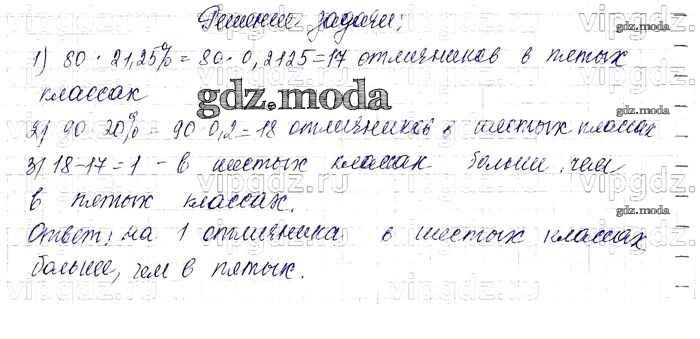 Решение задачи:
1) 80 · 21,25% = 80 · 0,2125 = 17 отличников в пятых
классах
gdz.moda
2) 90 · 20% = 90 · 0,2 = 18 отличников в шестых классах
3) 18 - 17 = 1 - в шестых классах больше, чем
в пятых классах.
Ответ: на 1 отличника в шестых классах
больше, чем в пятых.
vipgdz.ru
gdz.moda
gdz.moda
gdz.moda
gdz.moda